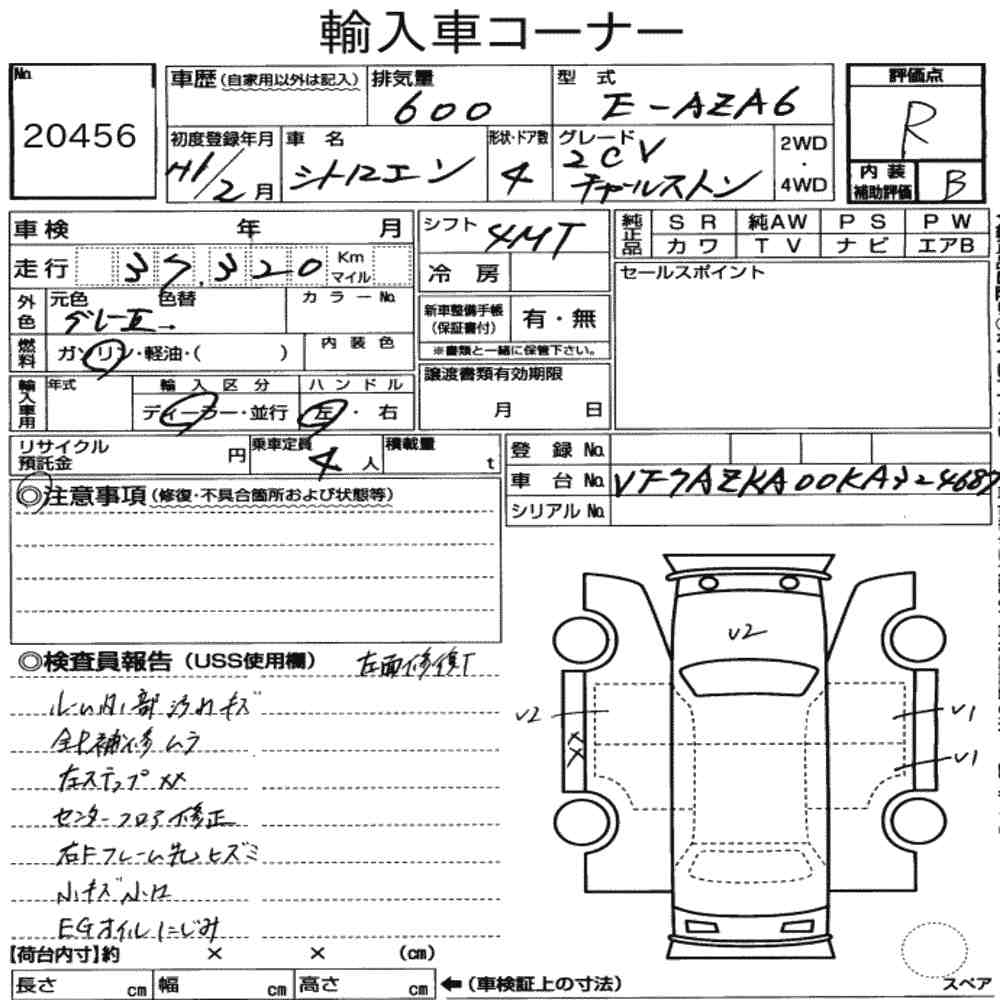 輸入車コーナー
No.
20456
車歴(自家用以外は記入)
排気量
600
型 式
E-AZA6
評価点
R
初度登録年月
H1/2月
車 名
シトロエン
形状・ドア数
4
グレード
2CV
チャールストン
2WD
・
4WD
内装
補助評価
B
車検 年 月
シフト
4MT
純正品
SR 純AW PS PW
カワ TV ナビ エアB
走行 37,320 Km
マイル
冷 房
セールスポイント
外色
元色 色替
グレーII→
カラーNo.
新車整備手帳
(保証書付)
有・無
※書類と一緒に保管下さい。
燃料
ガソリン・軽油・( )
内装色
譲渡書類有効期限
月 日
輸入車用
年式
輸入区分
ディーラー・並行
ハンドル
左・右
リサイクル
預託金
円
乗車定員
4人
積載量
t
登 録 No.
車 台 No. VF7AZKA00KA324687
シリアル No.
◎注意事項(修復・不具合箇所および状態等)
◎検査員報告(USS使用欄) 左面修復T
ルーム内部汚れキズ
全七補修ムラ
左ステップXX
センターフロア修正
右Fフレーム先ヒズミ
小キズ小凹
EGオイルにじみ
U2
U2
XX
U1
U1
【荷台内寸】約 × × (cm)
長さ cm 幅 cm 高さ cm ←(車検証上の寸法)
スペア